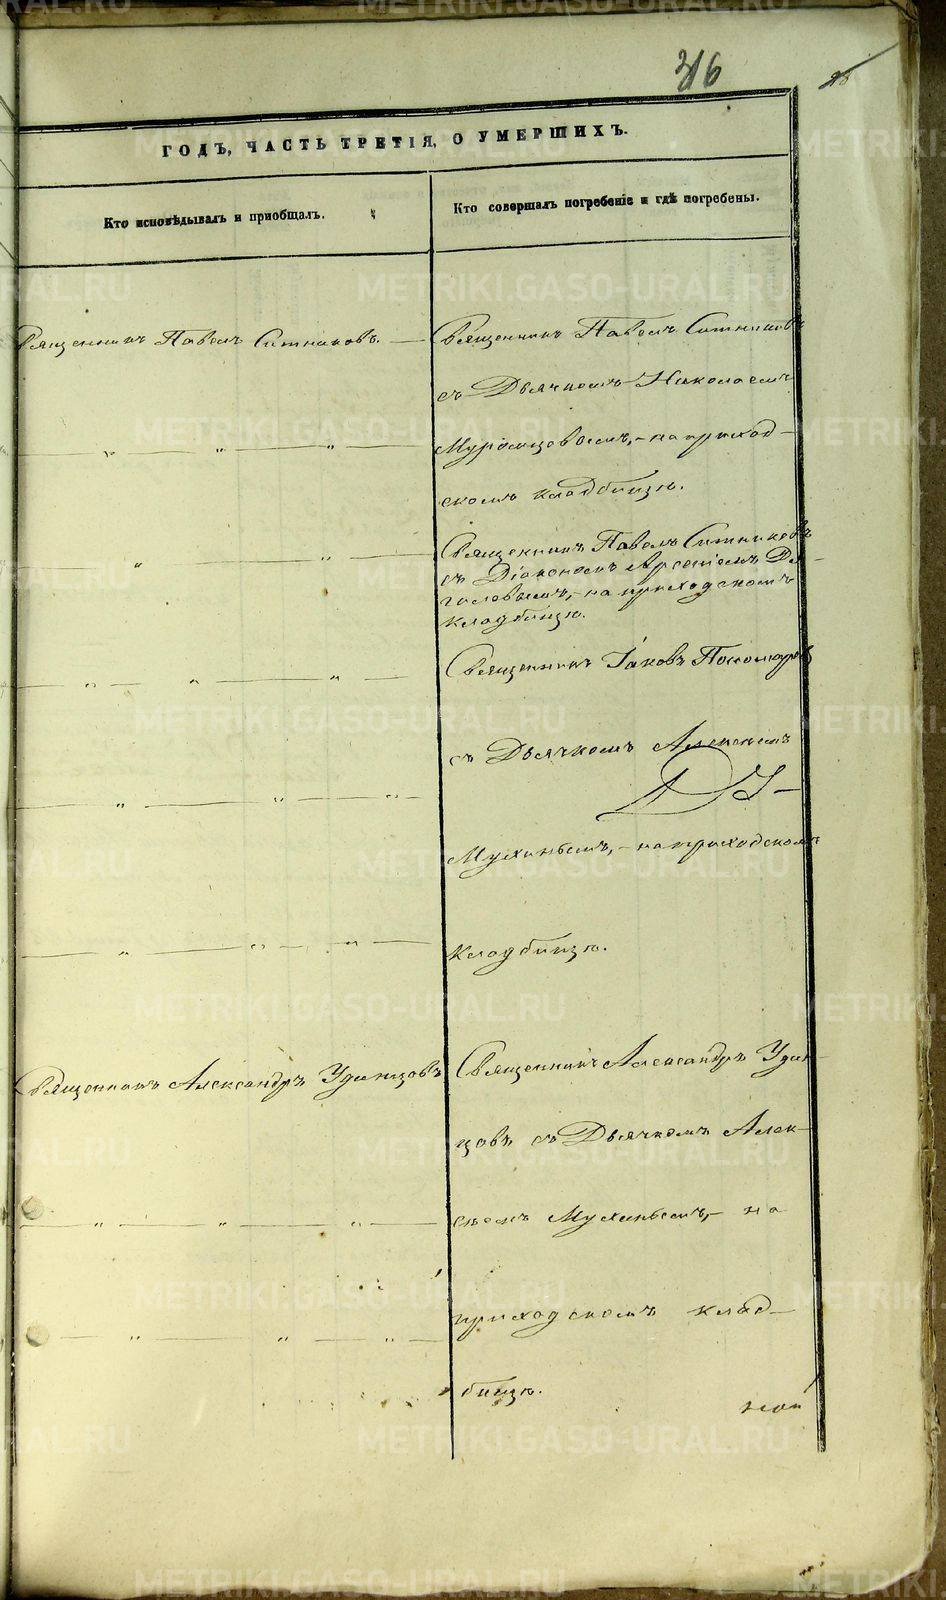 316
ГОДЪ, ЧАСТЬ ТРЕТІЯ, О УМЕРШИХЪ.
Кто исповѣдывалъ и приобщалъ.
Кто совершалъ погребеніе и гдѣ погребены.
Священникъ Павелъ Ситниковъ. —
Священникъ Павелъ Ситниковъ
съ Дьячкомъ Николаемъ
Муромцовымъ, – на приход-
скомъ кладбищѣ.
Священникъ Павелъ Ситниковъ
съ Діакономъ Арсеніемъ
на приходскомъ
кладбищѣ.
Священникъ Іаковъ Пономарев
съ Дьячкомъ Алексѣемъ
Мухинымъ, – на приходскомъ
кладбищѣ.
Священникъ Александръ Удинцовъ
Священникъ Александръ Удин-
цовъ съ Дьячкомъ Алек-
сѣемъ Мухинымъ, – на
приходскомъ клад-
бищѣ.
METRIKI.GASO-URAL.RU